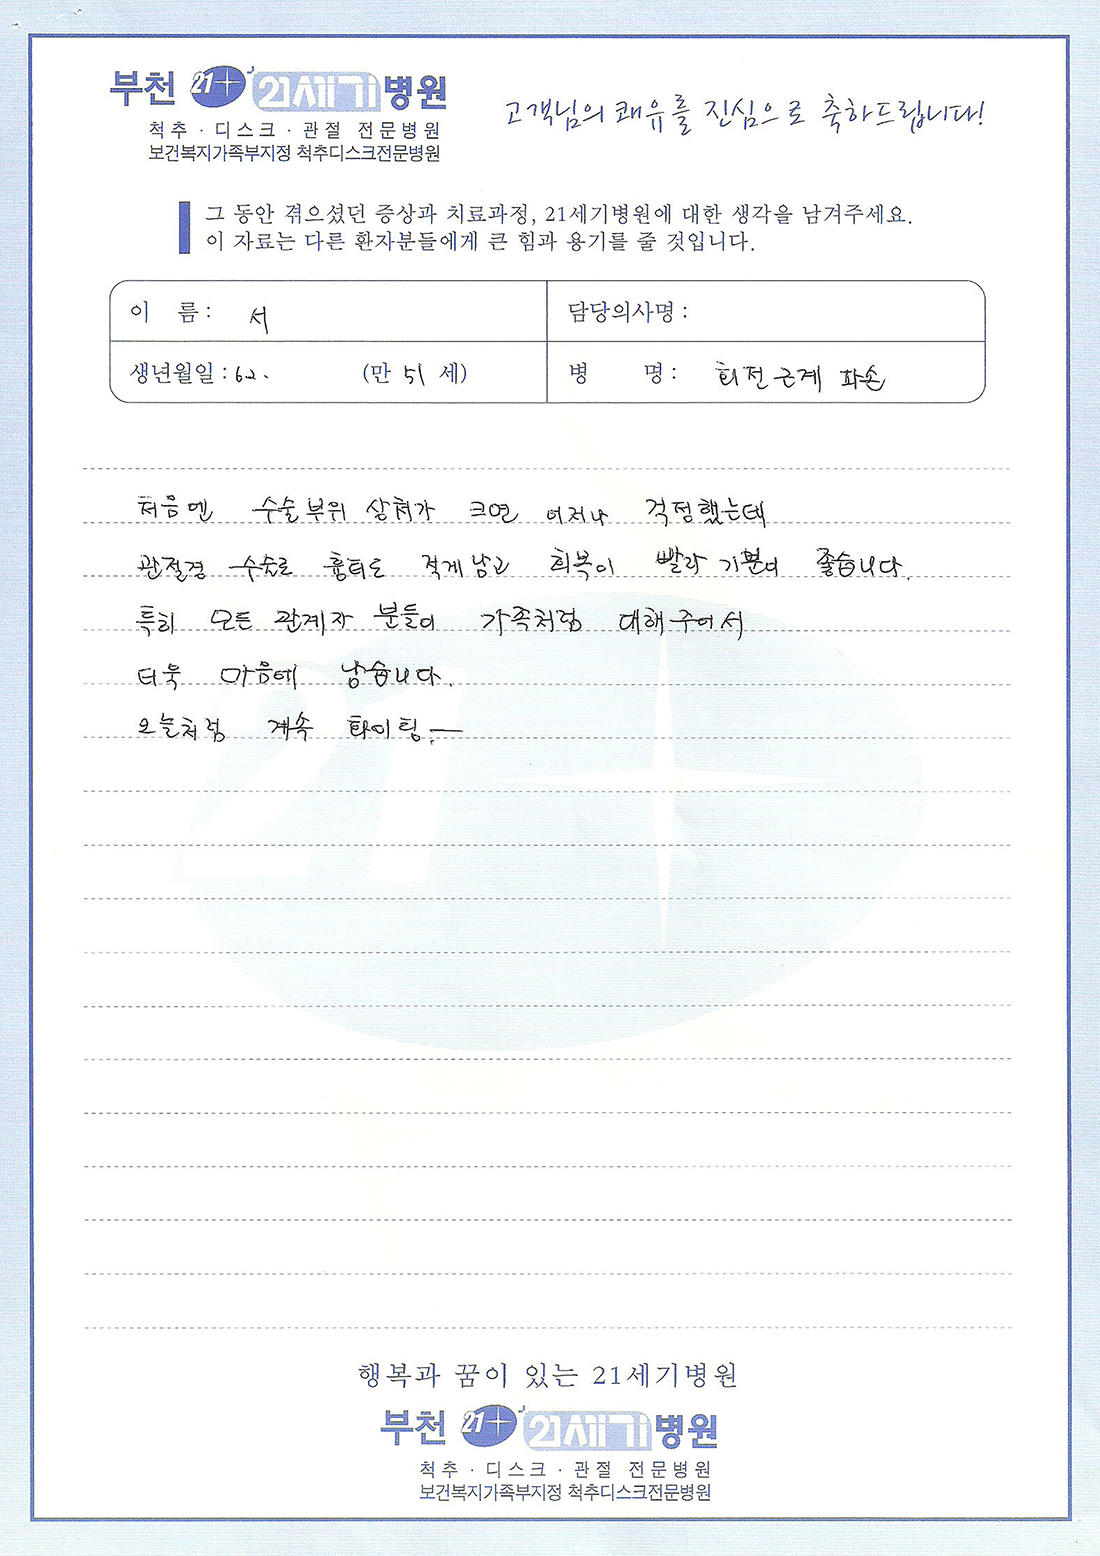 부천 21 21세기병원
척추 · 디스크 · 관절 전문병원
보건복지가족부지정 척추디스크전문병원
고객님의 쾌유를 진심으로 축하드립니다!
그 동안 겪으셨던 증상과 치료과정, 21세기병원에 대한 생각을 남겨주세요.
이 자료는 다른 환자분들에게 큰 힘과 용기를 줄 것입니다.
이 름 : 서
담당의사명 :
생년월일 : 62. (만 51 세)
병 명 : 회전근계 파손
처음엔 수술부위 상처가 크면 어저나 걱정했는데
관절경 수술로 흉터도 적게남고 회복이 빨라 기분이 좋습니다.
특히 모든 관계자 분들이 가족처럼 대해주어서
더욱 마음에 남습니다.
오늘처럼 계속 화이팅.
21
행복과 꿈이 있는 21세기병원
부천 21 21세기병원
척추 · 디스크 · 관절 전문병원
보건복지가족부지정 척추디스크전문병원